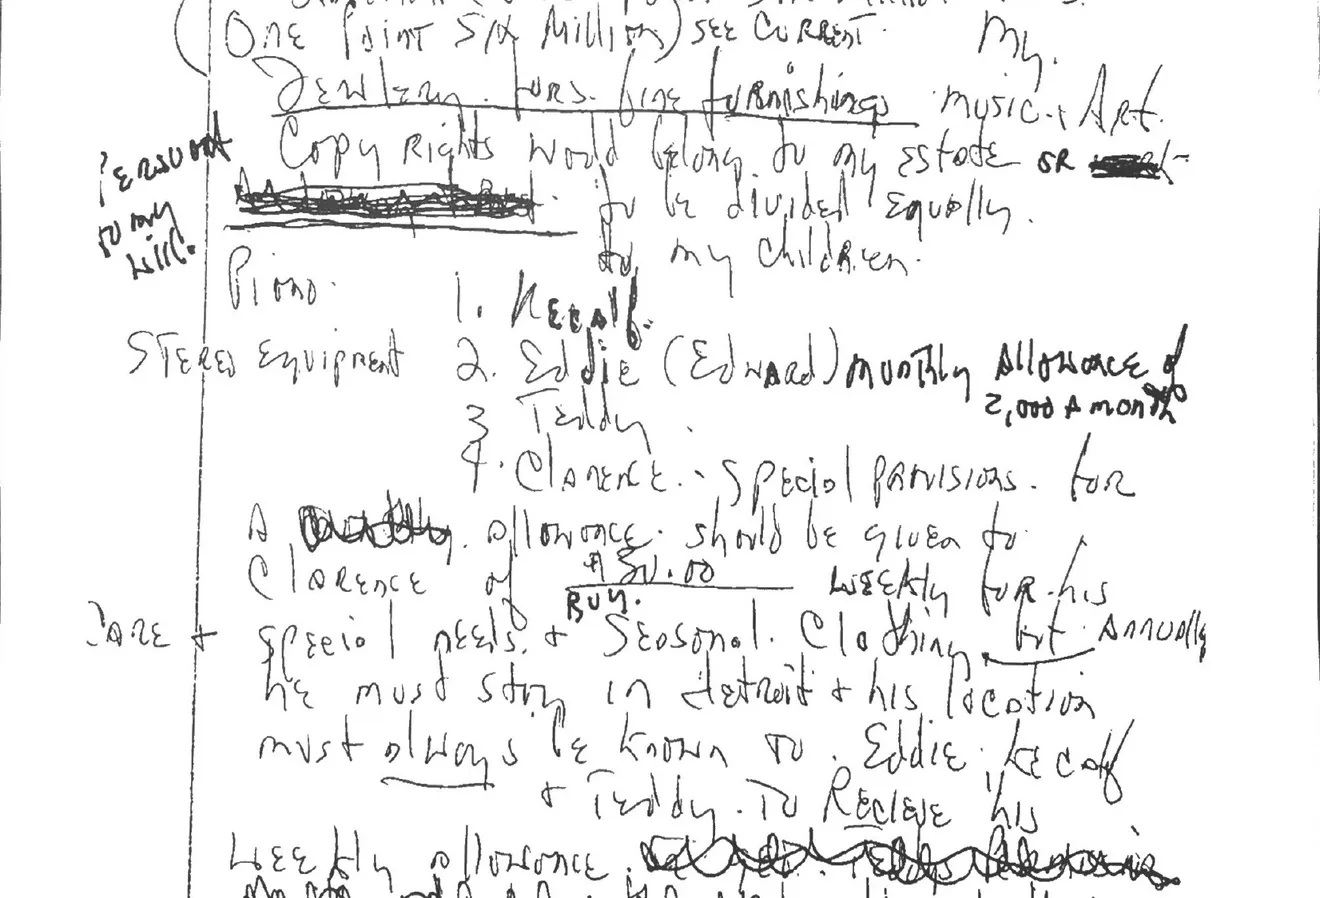 (One Point Six Million) see current. My.
Jewlery. Furs. fine furnishings music. Art.
Copy Rights would belong to my estate or
to be divided equally.
to my children.
Persuant
to my
will.
Piano. 1. Kecalf.
Stereo Equipment 2. Eddie (Edward) monthly Allowance of
2,000 A month
3 Teddy.
4. Clarence. special provisions. for
A allowance. should be given to
Clarence of $50.00 weekly for his
Buy.
Care + special needs. + Seasonal. Clothing but Annually
he must stay in detroit + his location
must always be known to. Eddie, Kecalf
+ Teddy. To Recieve his
weekly allowance.